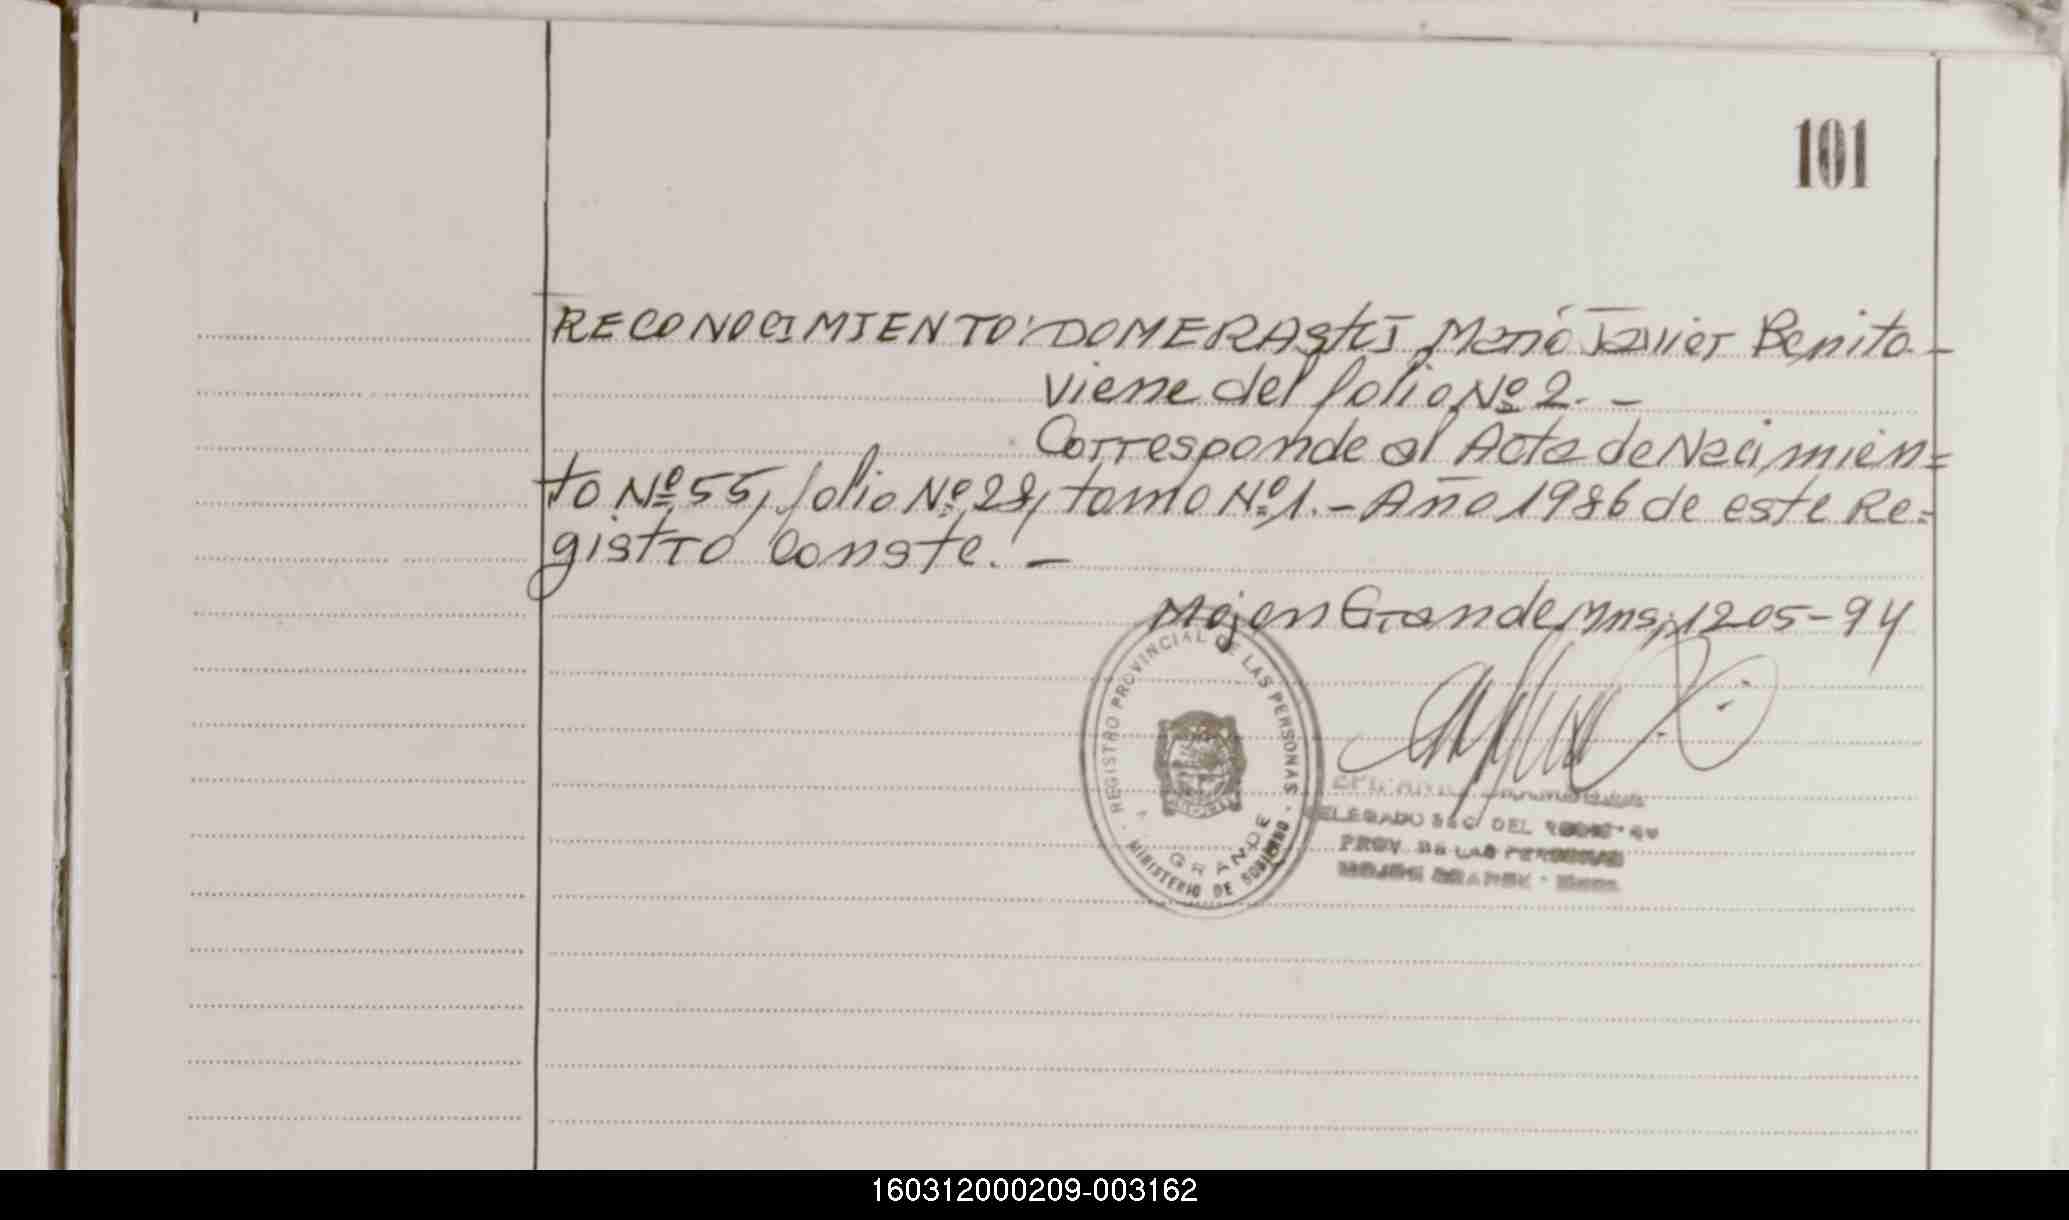 101
RECONOCIMIENTO: DOMERASKI, Mario Javier Benito-
viene del folio Nº 2.-
Corresponde al Acta de Nacimien=
to Nº 55, folio Nº 28, tomo Nº 1.- Año 1986 de este Re=
gistro Conste.-
Mojon Grande Mns, 12-05-94
REGISTRO PROVINCIAL DE LAS PERSONAS
GRANDE
MINISTERIO DE GOBIERNO
DELEGADO SEC. DEL
PROV. DE LAS PERSONAS
MOJON GRANDE - Mnes.
160312000209-003162